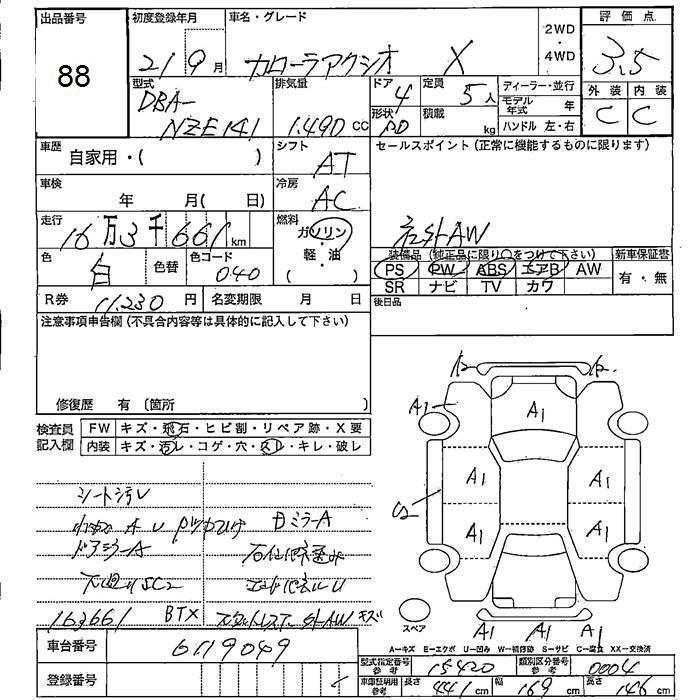 出品番号
88
初度登録年月
21 9月
車名・グレード
カローラアクシオ X
2WD
・
4WD
評価点
3.5
外装 内装
C C
型式
DBA-
NZE141
排気量
1.490 CC
ドア
4
定員
5人
形状
積載
kg
ディーラー・並行
モデル年式 年
ハンドル 左・右
車歴
自家用・( )
シフト
AT
セールスポイント (正常に機能するものに限ります)
社外AW
車検
年 月( 日)
冷房
AC
走行
16万3千661km
燃料
ガソリン
・
軽・油
( )
色
白
色替
色コード
040
装備品 (純正品に限り○をつけて下さい)
PS PW ABS エアB AW
SR ナビ TV カワ
新車保証書
有・無
R券 11.230円
名変期限 月 日
後日品
注意事項申告欄 (不具合内容等は具体的に記入して下さい)
修復歴 有 (箇所 )
検査員
記入欄
FW キズ・飛石・ヒビ割・リペア跡・X要
内装 キズ・汚レ・コゲ・穴・スレ・キレ・破レ
シート汚レ
ドアミラーA
Dミラー A
下廻りSC2
163661 BTX
社外AW キズ
A1
A1
A1 A1
C2
A1 A1
A1 A1 A1
スペア
A―キズ E―エクボ U―凹み W―補修跡 S―サビ C―腐食 XX―交換済
車台番号
6119049
登録番号
型式指定番号
参考
15420
類別区分番号
参考
0004
車庫証明用
参考
長さ 441cm
幅 169cm
高さ 146cm